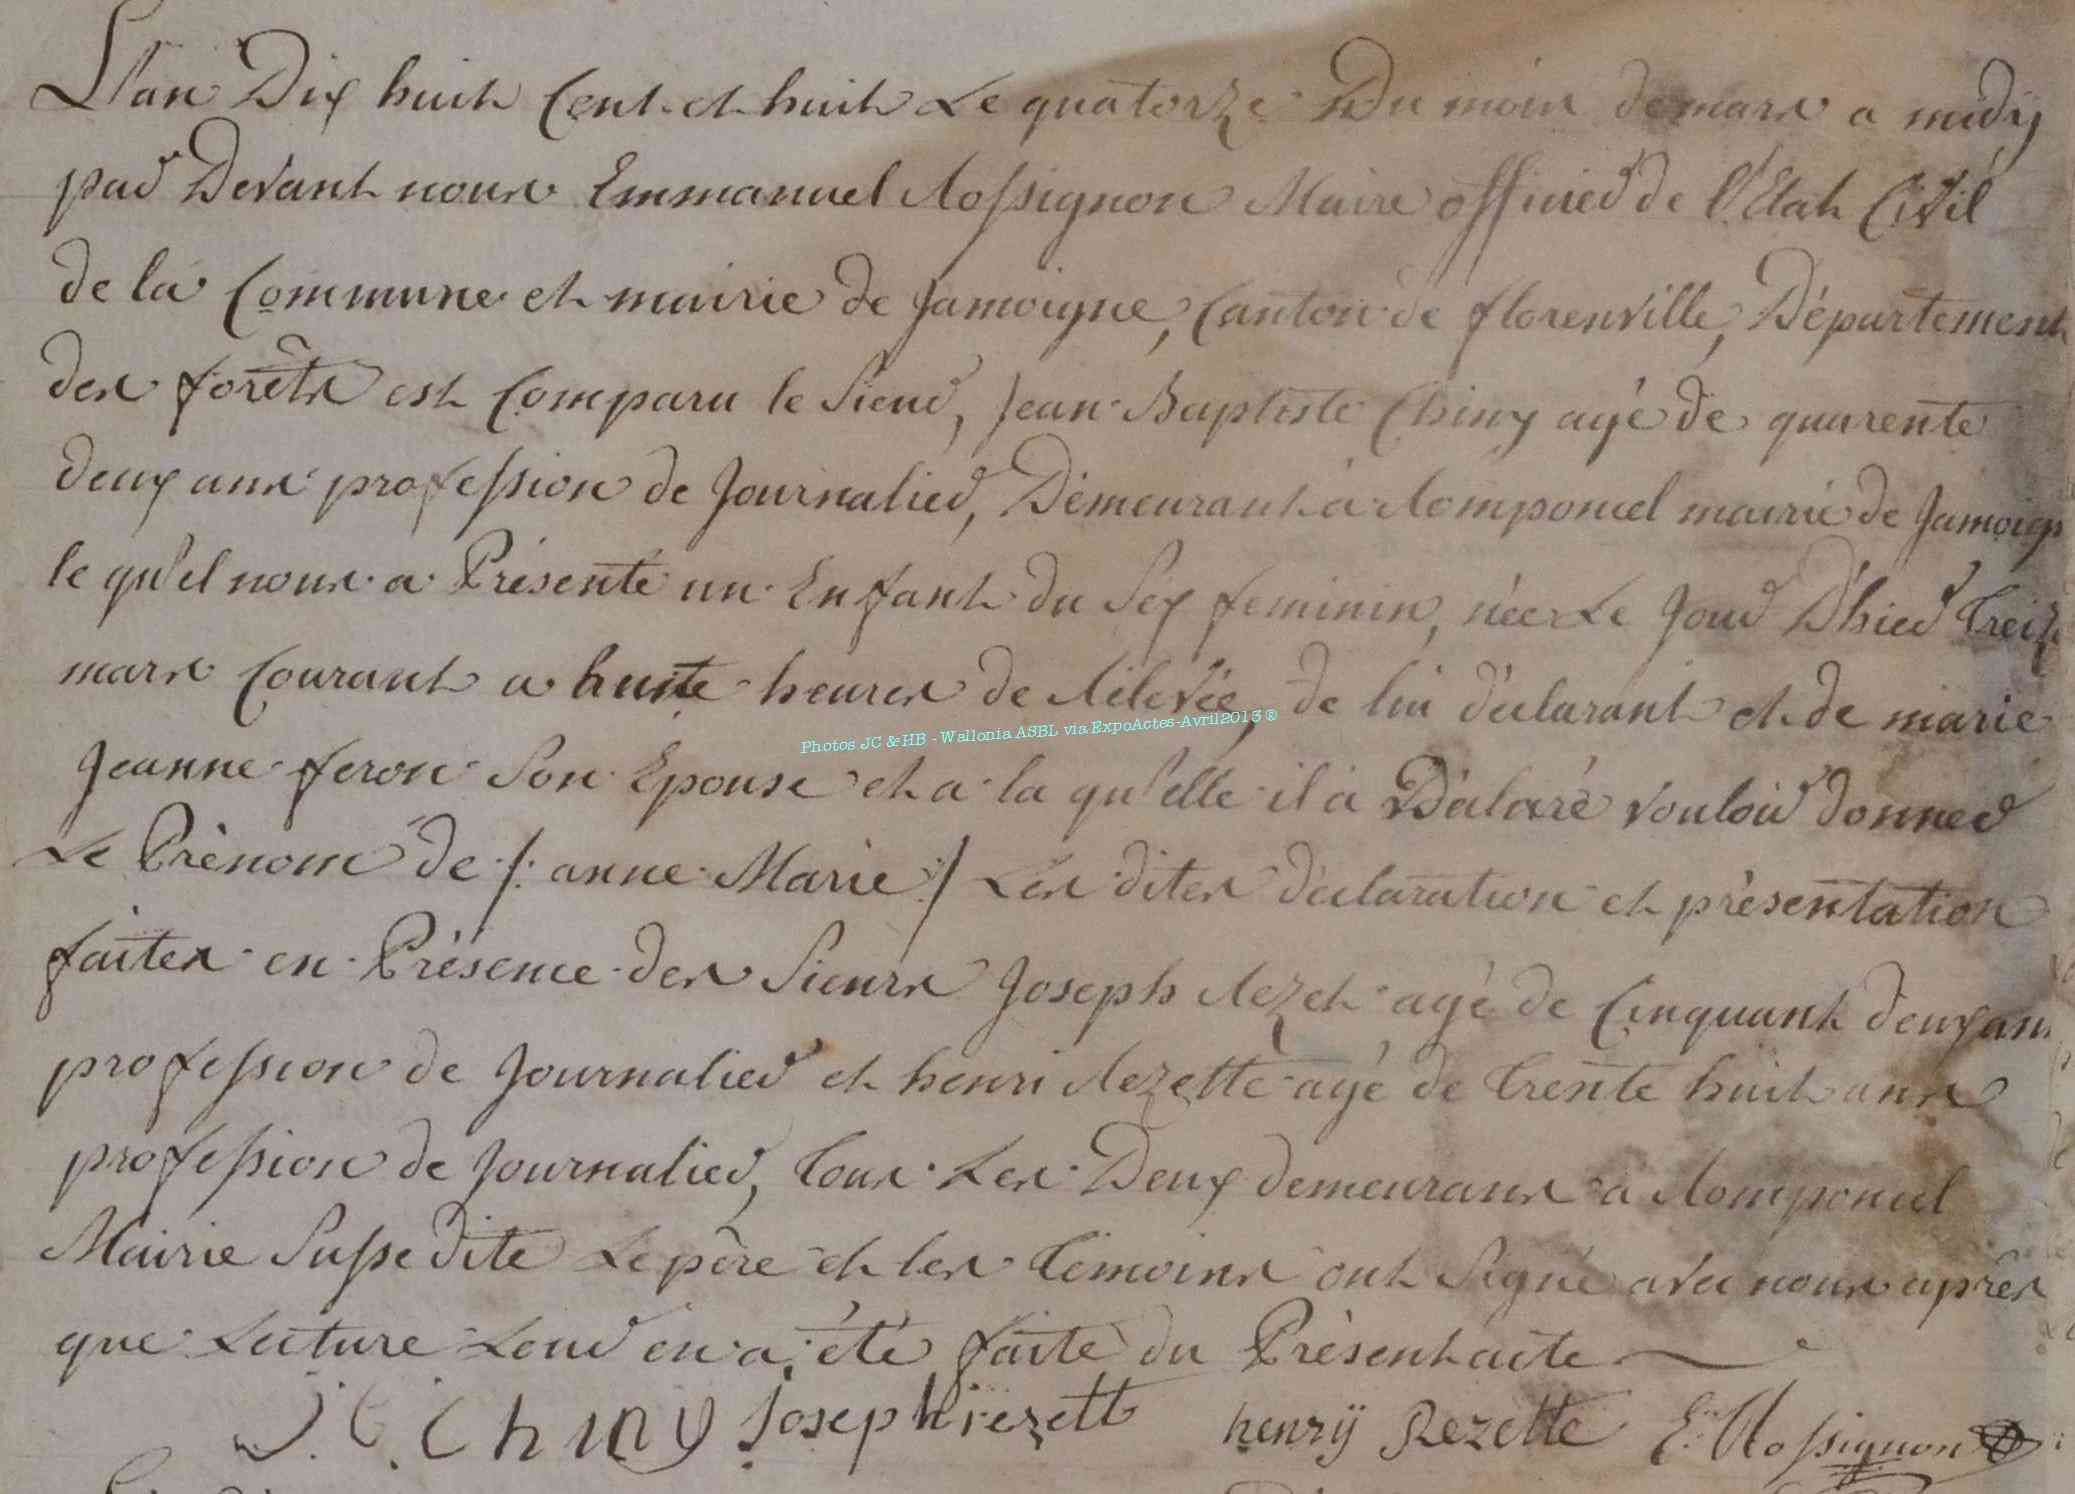 L'an Dix huit Cent et huit Le quatorze Du mois de mars a midÿ
par Devant nous Emmanuel Rossignon Maire officier de l'Etat Civil
de la Commune et mairie de Jamoigne, Canton de florenville, Département
des forêts est Comparu le Sieur, Jean Baptiste Chiny agé de quarente
deux ans profession de Journalier, Demeurant à Romponcel mairie de Jamoig
le qu'el nous a Présenté un Enfant du Sex feminin, née Le Jour D'hier Treiz
mars Courant a huite heures de Rélevée, de lui déclarant et de marie
Jeanne feron Son Epouse et a la qu'elle il a Déclaré vouloir donner
Le Prénom de /: anne Marie :/ Les dites déclaration et présentation
faites en Présence des Sieurs Joseph Rezet agé de Cinquant deux ans
profession de Journalier et henri Rezette agé de Trente huit ans
profession de Journalier, Tous Les Deux demeurans a Romponcel
Mairie Susse dite Le père et les Témoins ont Signé avec nous après
que Lecture Leur en a été faite du Présent acte
J. b. Chiny Joseph rezett henrÿ Rezette E: Rossignon
Photos JC & HB - Wallonia ASBL via ExpoActes-Avril2013 ®